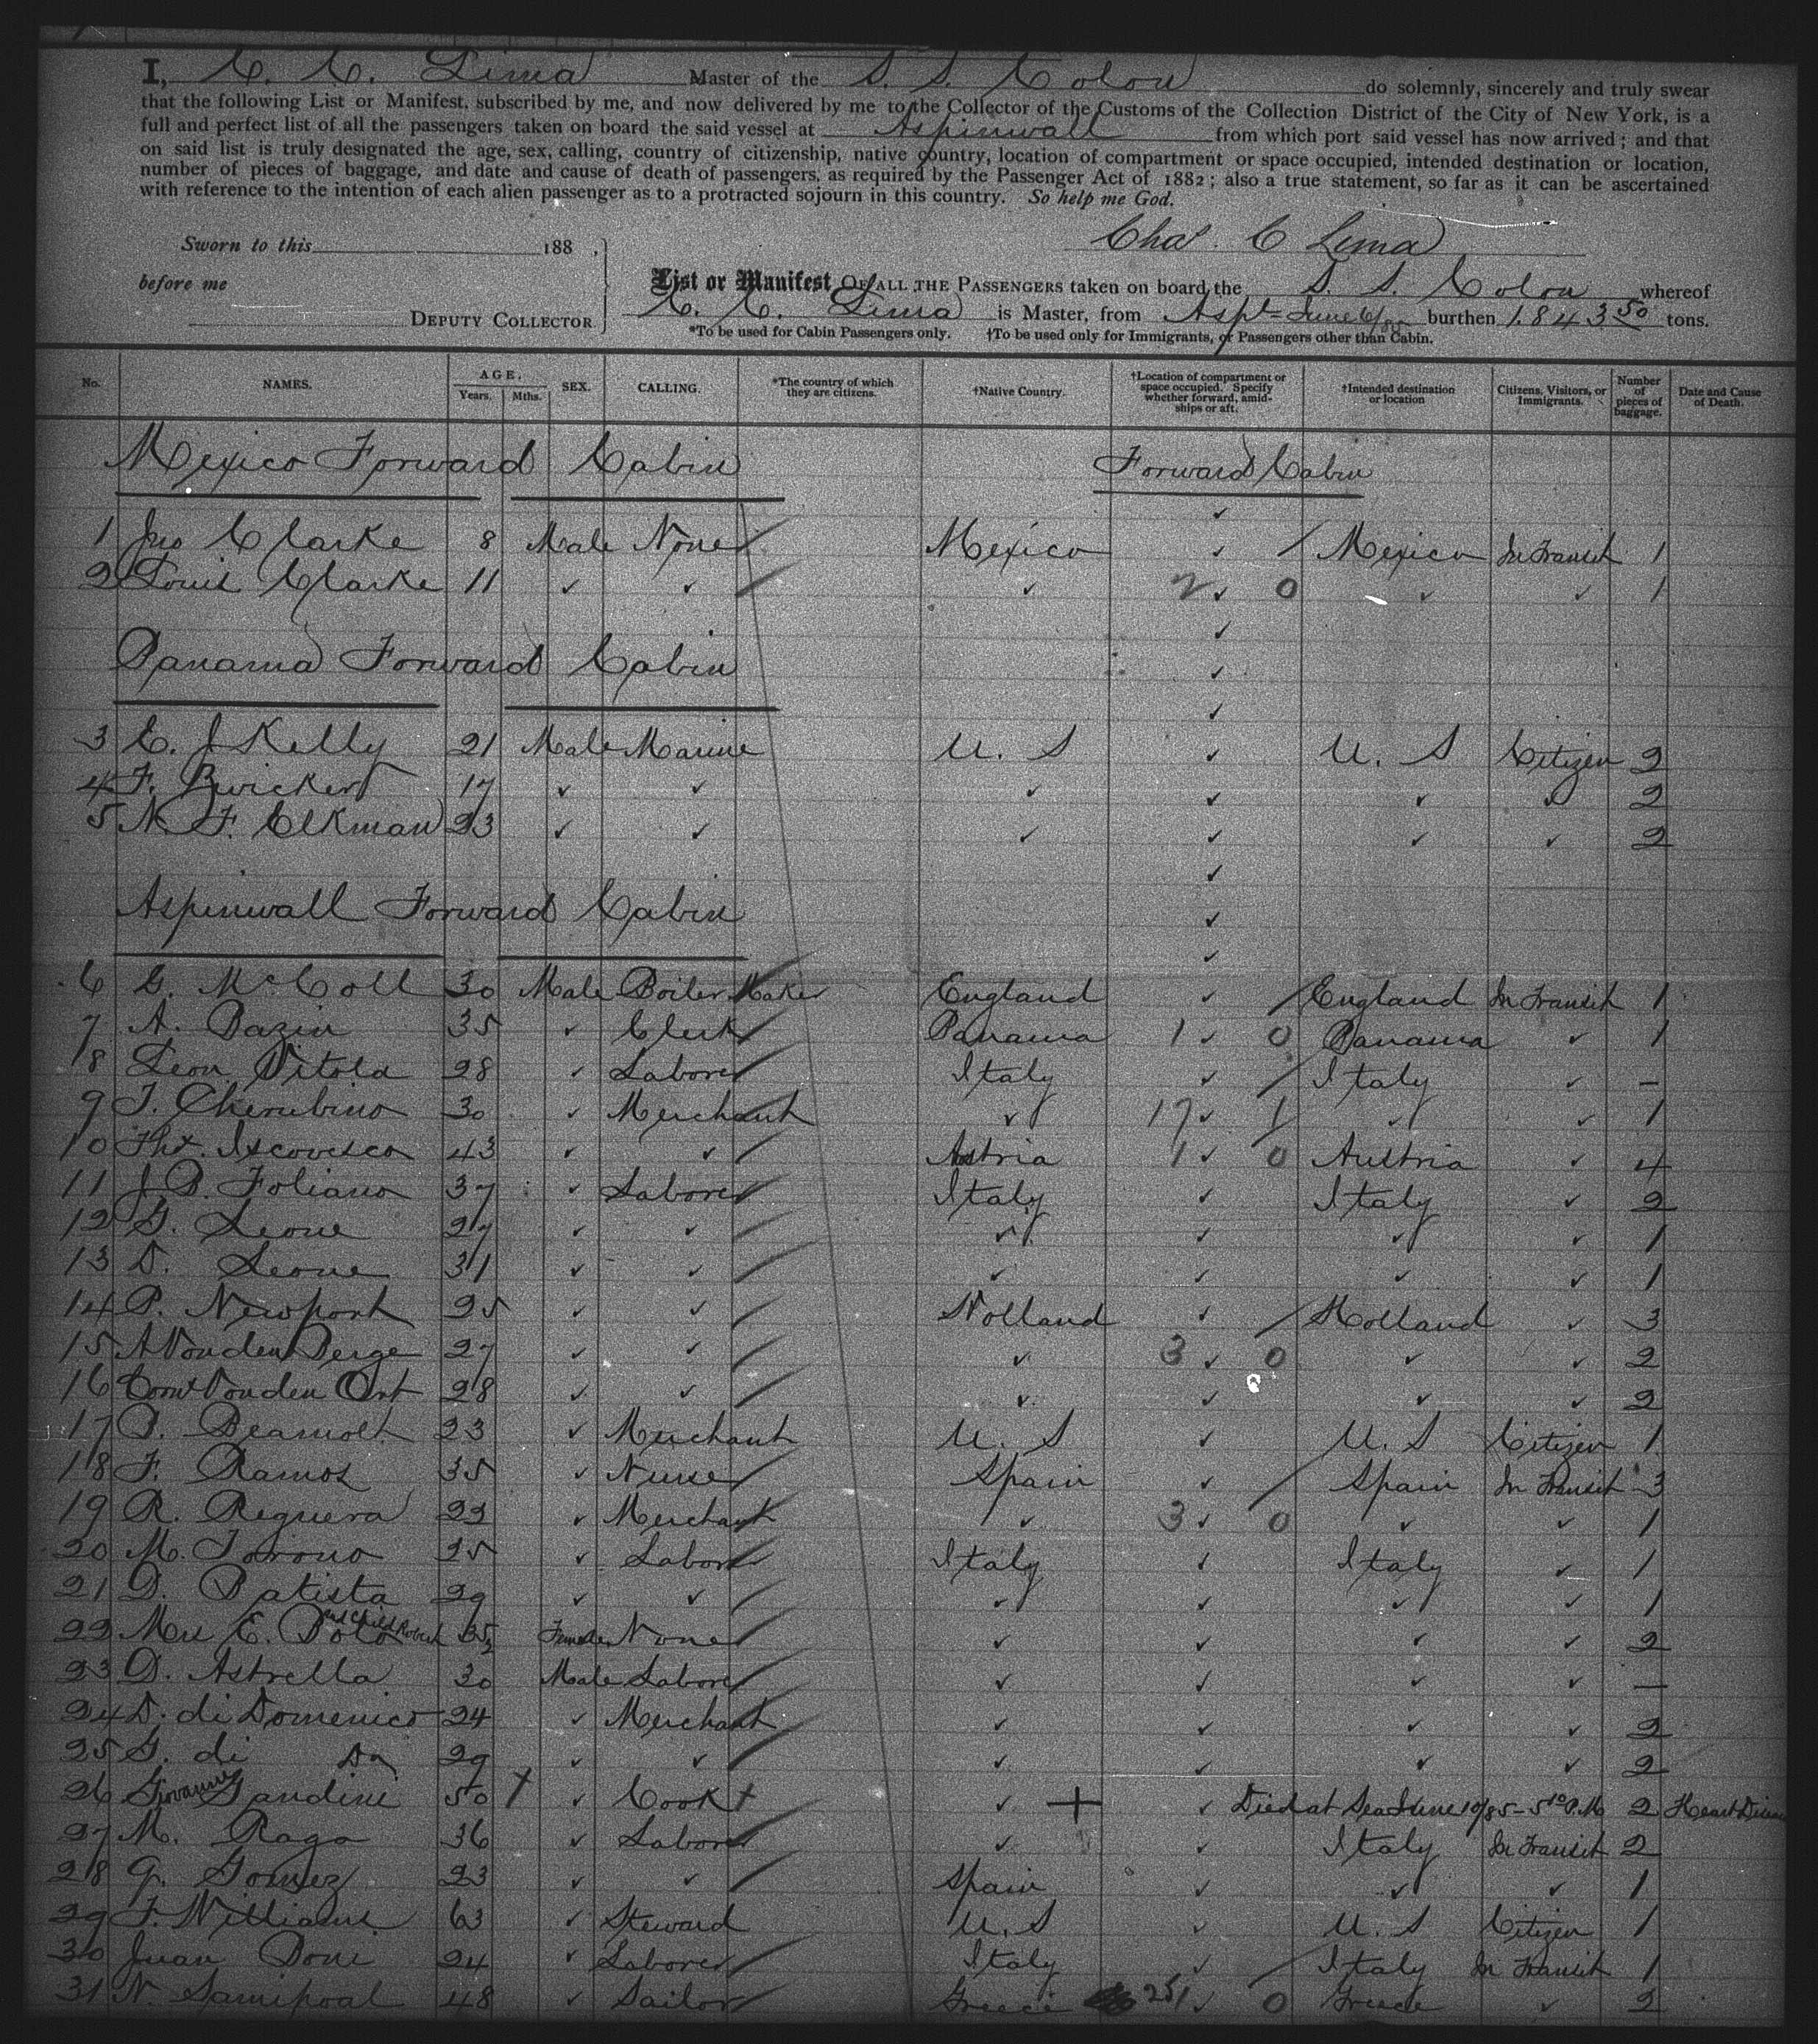 I, C. C. Lima Master of the S. S. Colon do solemnly, sincerely and truly swear
that the following List or Manifest, subscribed by me, and now delivered by me to the Collector of the Customs of the Collection District of the City of New York, is a
full and perfect list of all the passengers taken on board the said vessel at Aspinwall from which port said vessel has now arrived; and that
on said list is truly designated the age, sex, calling, country of citizenship, native country, location of compartment or space occupied, intended destination or location,
number of pieces of baggage, and date and cause of death of passengers, as required by the Passenger Act of 1882; also a true statement, so far as it can be ascertained
with reference to the intention of each alien passenger as to a protracted sojourn in this country. So help me God.
Chas. C Lima
Sworn to this 188 ,
before me
DEPUTY COLLECTOR
List or Manifest OF ALL THE PASSENGERS taken on board the S. S. Colon whereof
C. C. Lima is Master, from Aspl June 6/85 burthen 1.843 50 tons.
*To be used for Cabin Passengers only. †To be used only for Immigrants, or Passengers other than Cabin.
No. NAMES. AGE. Years. Mths. SEX. CALLING. *The country of which they are citizens. †Native Country. †Location of compartment or space occupied. Specify whether forward, amidships or aft. †Intended destination or location Citizens, Visitors, or Immigrants. Number of pieces of baggage. Date and Cause of Death.
Mexico Forward Cabin Forward Cabin
1 Jno Clarke 8 Male None Mexico ✓ / Mexico In Transit 1
2 Louis Clarke 11 ✓ ✓ ✓ 2 ✓ 0 ✓ ✓ 1
Panama Forward Cabin
3 C. J Kelly 21 Male Marine U. S ✓ U. S Citizen 2
4 F. 17 ✓ ✓ ✓ ✓ ✓ ✓ 2
5 N. F. Elkman 23 ✓ ✓ ✓ ✓ ✓ ✓ 2
Aspinwall Forward Cabin
6 G. McColl 30 Male Boiler Maker England ✓ / England In Transit 1
7 A. Bazin 35 ✓ Clerk Panama 1 ✓ 0 Panama ✓ 1
8 Leon Vitola 28 ✓ Laborer Italy ✓ / Italy ✓ –
9 T. Cherubino 30 ✓ Merchant ✓ 17 ✓ 1 ✓ ✓ 1
10 43 ✓ ✓ Austria 1 ✓ 0 Austria ✓ 4
11 J. B. Foliano 37 ✓ Laborer Italy ✓ Italy ✓ 2
12 G. Leone 27 ✓ ✓ ✓ ✓ ✓ ✓ 1
13 D. Leone 31 ✓ ✓ ✓ ✓ ✓ ✓ 1
14 P. Newport 25 ✓ ✓ Holland ✓ / Holland ✓ 3
15 A Vonden Berge 27 ✓ ✓ ✓ 3 ✓ 0 ✓ ✓ 2
16 Vonden Ort 28 ✓ ✓ ✓ ✓ ✓ ✓ 2
17 P. 23 ✓ Merchant U. S ✓ U. S Citizen 1
18 F. Ramos 35 ✓ Nurse Spain ✓ / Spain In Transit 3
19 R. Reguera 22 ✓ Merchant ✓ 3 ✓ 0 ✓ ✓ 1
20 M. Torono 25 ✓ Laborer Italy ✓ Italy ✓ 1
21 D. Batista 29 ✓ ✓ ✓ ✓ ✓ ✓ 1
22 Mrs E. Polo and child Robert 35 Female None ✓ ✓ ✓ ✓ 2
23 D. Astrella 30 Male Laborer ✓ ✓ ✓ ✓ –
24 D. di Domenico 24 ✓ Merchant ✓ ✓ ✓ ✓ 2
25 G. di Do 29 ✓ ✓ ✓ ✓ ✓ ✓ 2
26 Giovanni Gandini 50 + ✓ Cook + ✓ + ✓ Died at Sea June 10/85 – 5 10 P.M 2 Heart Disease
27 M. Raga 36 ✓ Laborer ✓ ✓ Italy In Transit 2
28 G. Gomez 23 ✓ ✓ Spain ✓ ✓ ✓ 1
29 F. Williams 63 ✓ Steward U. S ✓ U. S Citizen 1
30 Juan Doni 24 ✓ Laborer Italy ✓ / Italy In Transit 1
31 N. 48 ✓ Sailor Greece 251 ✓ 0 Greece ✓ 2